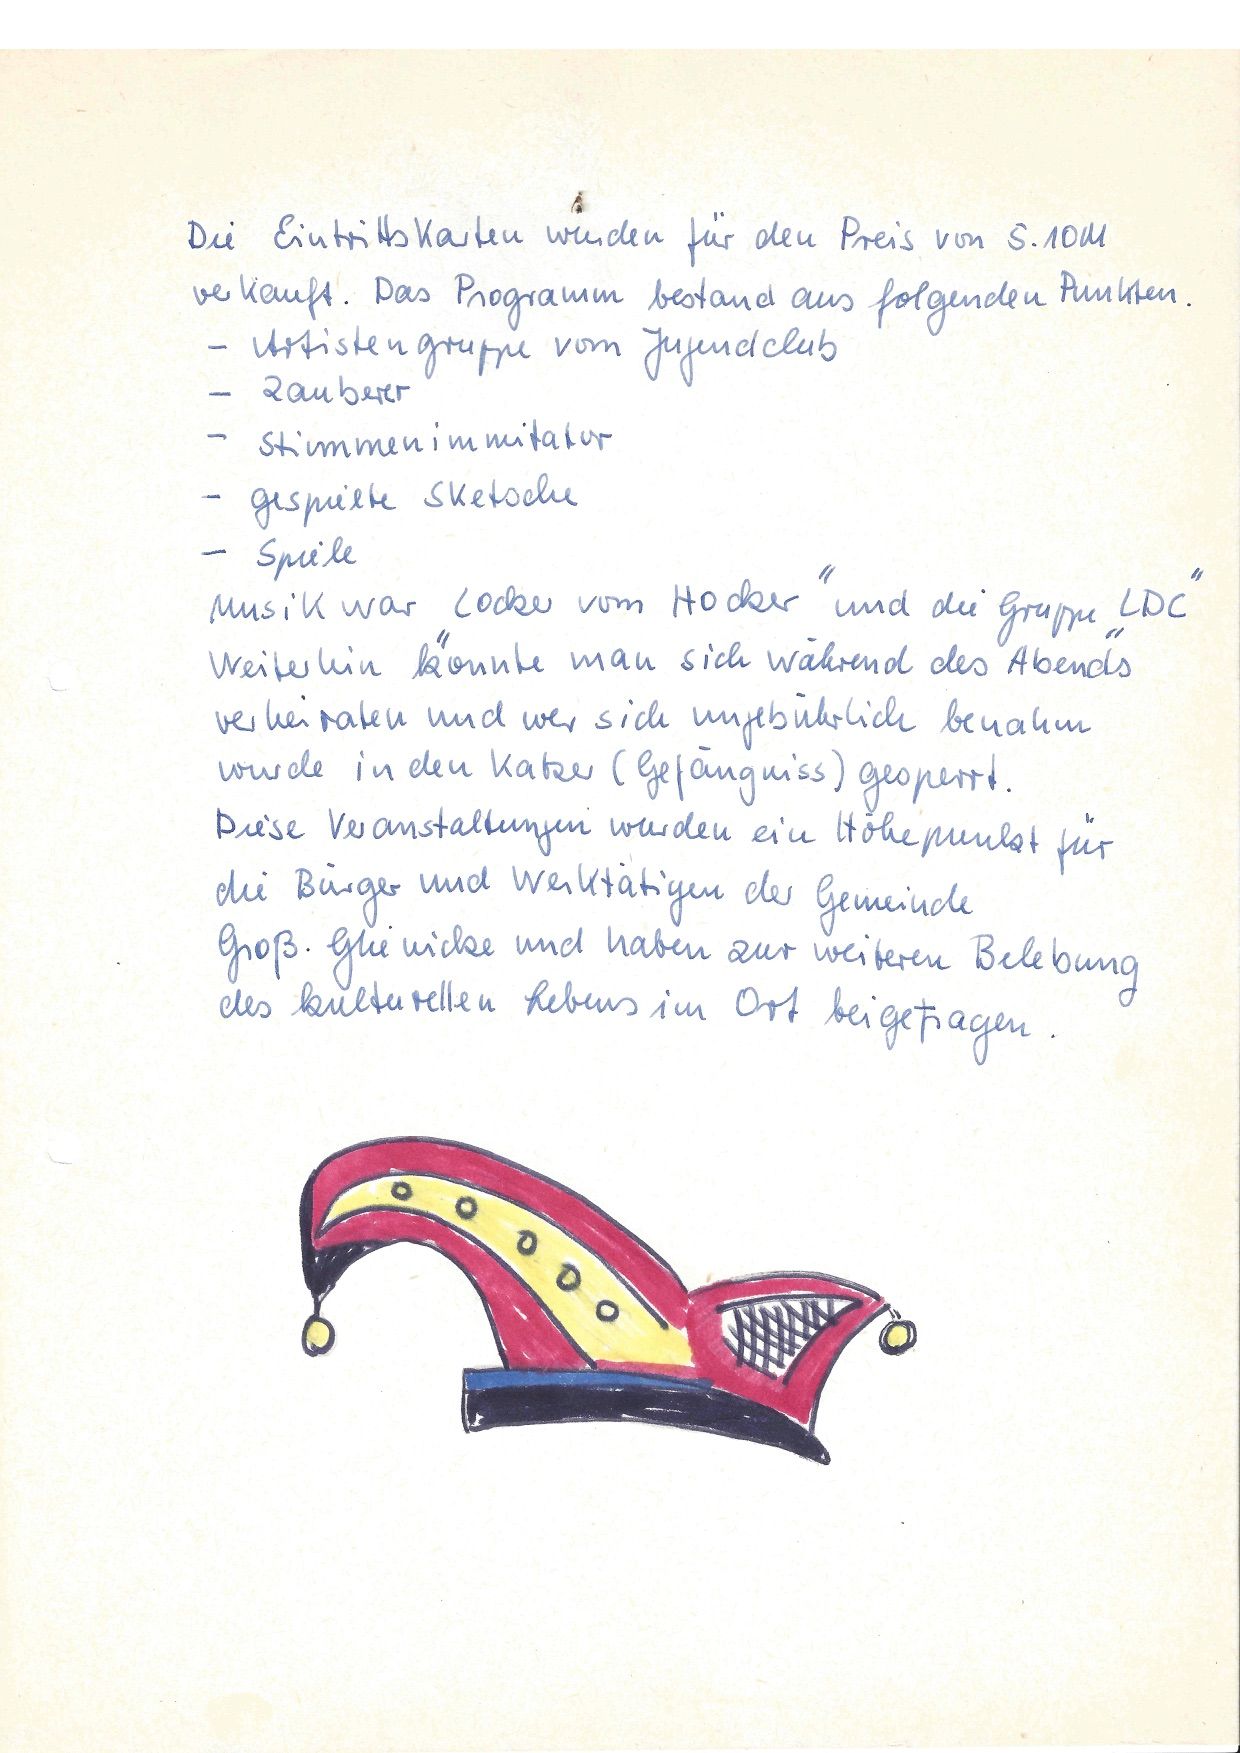 Die Eintrittskarten wurden für den Preis von 5.10M
verkauft. Das Programm bestand aus folgenden Punkten.
- Artistengruppe vom Jugendclub
- Zauberer
- Stimmenimmitator
- gespielte Sketsche
- Spiele
Musik war "Locker vom Hocker" und die Gruppe "LDC"
Weiterhin konnte man sich während des Abends
verheiraten und wer sich ungebührlich benahm
wurde in den Katzer (Gefängniss) gesperrt.
Diese Veranstaltungen wurden ein Höhepunkt für
die Bürger und Werktätigen der Gemeinde
Groß. Glienicke und haben zur weiteren Belebung
des kulturellen Lebens im Ort beigetragen.